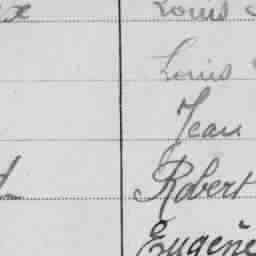 Louis
Louis
Jean
Robert
Eugène